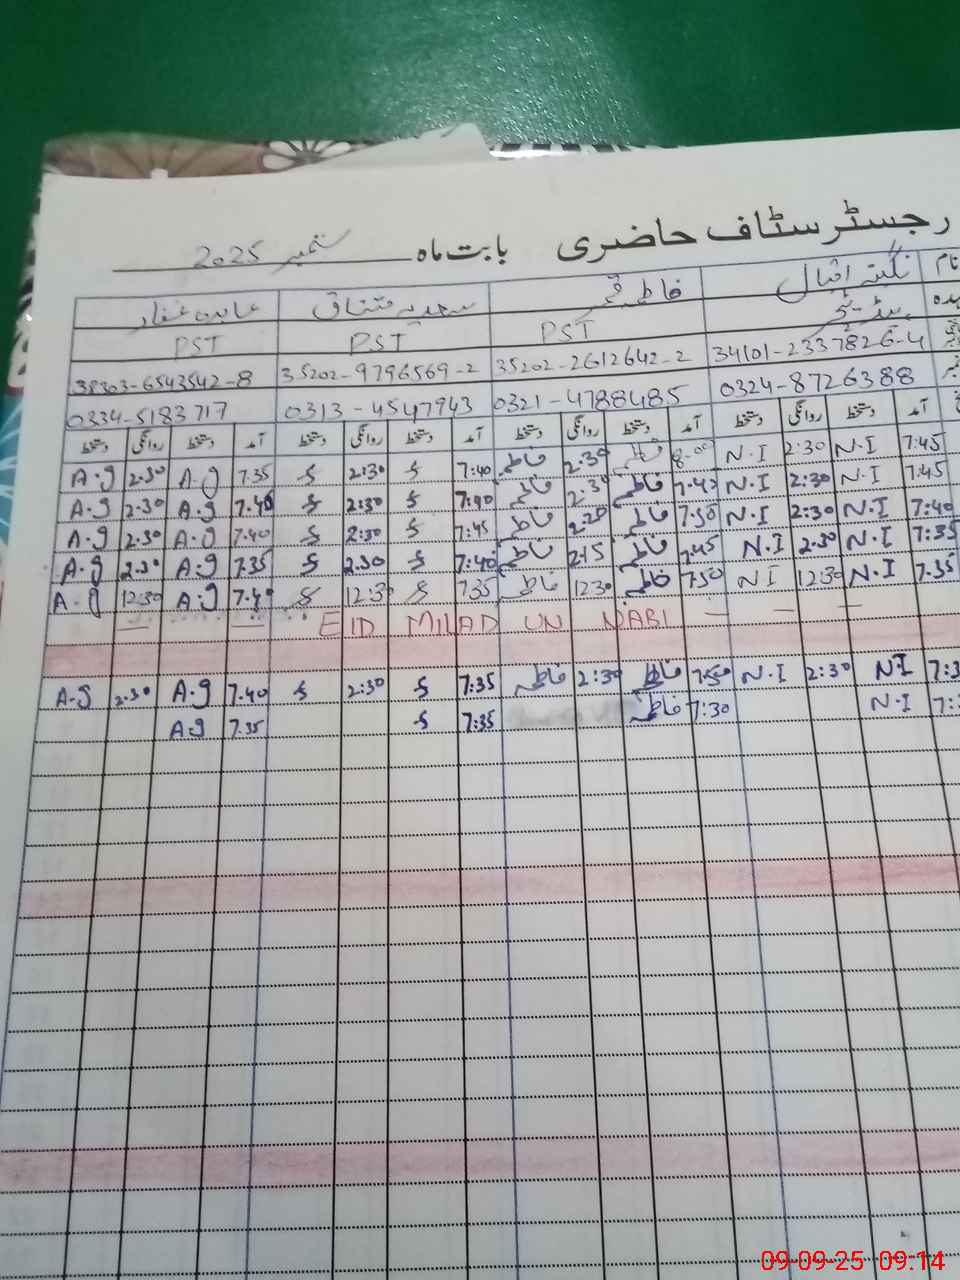 رجسٹر سٹاف حاضری بابت ماہ ستمبر 2025
نام نگینہ اقبال فاطمہ قمر سعدیہ مشتاق عابدہ غفار
عہدہ ہیڈ ٹیچر PST PST PST
34101-2337826-4 35202-2612642-2 35202-9796569-2 35303-6543542-8
0324-8726388 0321-4788485 0313-4547943 0334-5183717
آمد دستخط روانگی دستخط آمد دستخط روانگی دستخط آمد دستخط روانگی دستخط آمد دستخط روانگی دستخط
7:45 N.I 2:30 N.I 8:00 فاطمہ 2:30 فاطمہ 7:40 2:30 7.35 A.g 2.30 A.g
7:45 N.I 2:30 N.I 7.42 فاطمہ 2:30 فاطمہ 7:40 2:30 7.40 A.g 2.30 A.g
7:40 N.I 2:30 N.I 7.50 فاطمہ 2:20 فاطمہ 7:45 2:30 7.40 A.g 2.30 A.g
7:35 N.I 2:30 N.I 7.45 فاطمہ 2:15 فاطمہ 7:40 2:30 7.35 A.g 2.30 A.g
7:35 N.I 12:30 N.I 7:50 فاطمہ 12:30 فاطمہ 7:35 12:30 7.40 A.g 12:30 A.g
— — EID MILAD UN NABI — — —
N.I 2:30 N.I 7:50 فاطمہ 2:30 فاطمہ 7:35 2:30 7.40 A.g 2.30 A.g
N.I 7:30 فاطمہ 7:35 7.35 A.g
09-09-25 09:14